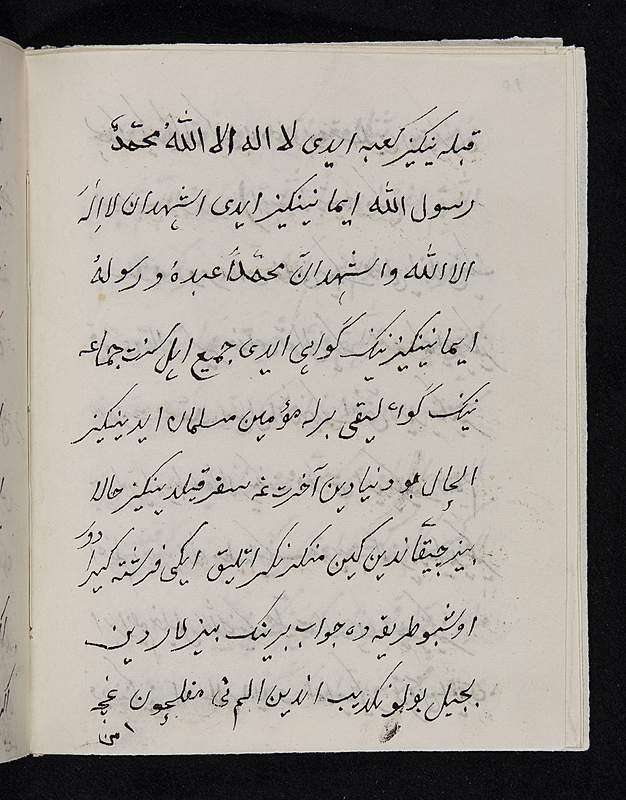 قبله نیکیز کعبه ایدی لا اله الا الله محمّدٌ
رسول الله ایما نینکیز ایدی اشهدان لا اِلٰهَ
الا الله و اشهدان محمّداً عبدهُ و رسولهُ
ایما نینکیز نیک گواهی ایدی جمیع اهل سنت جماعه
نیک گواه لیقی برله مؤمین مسلمان ایدینکیز
الحال بو دنیا دین آخرت غه سفر قیلدینکیز حالا
بیز چیقاندین کین منکر نکر اتلیق ایکی فرشته کیرا دور
اوشبو طریقه ده جواب برینک بیز لار دین
بجیل بولونکدیب اندین الم نی مفلحون غچه